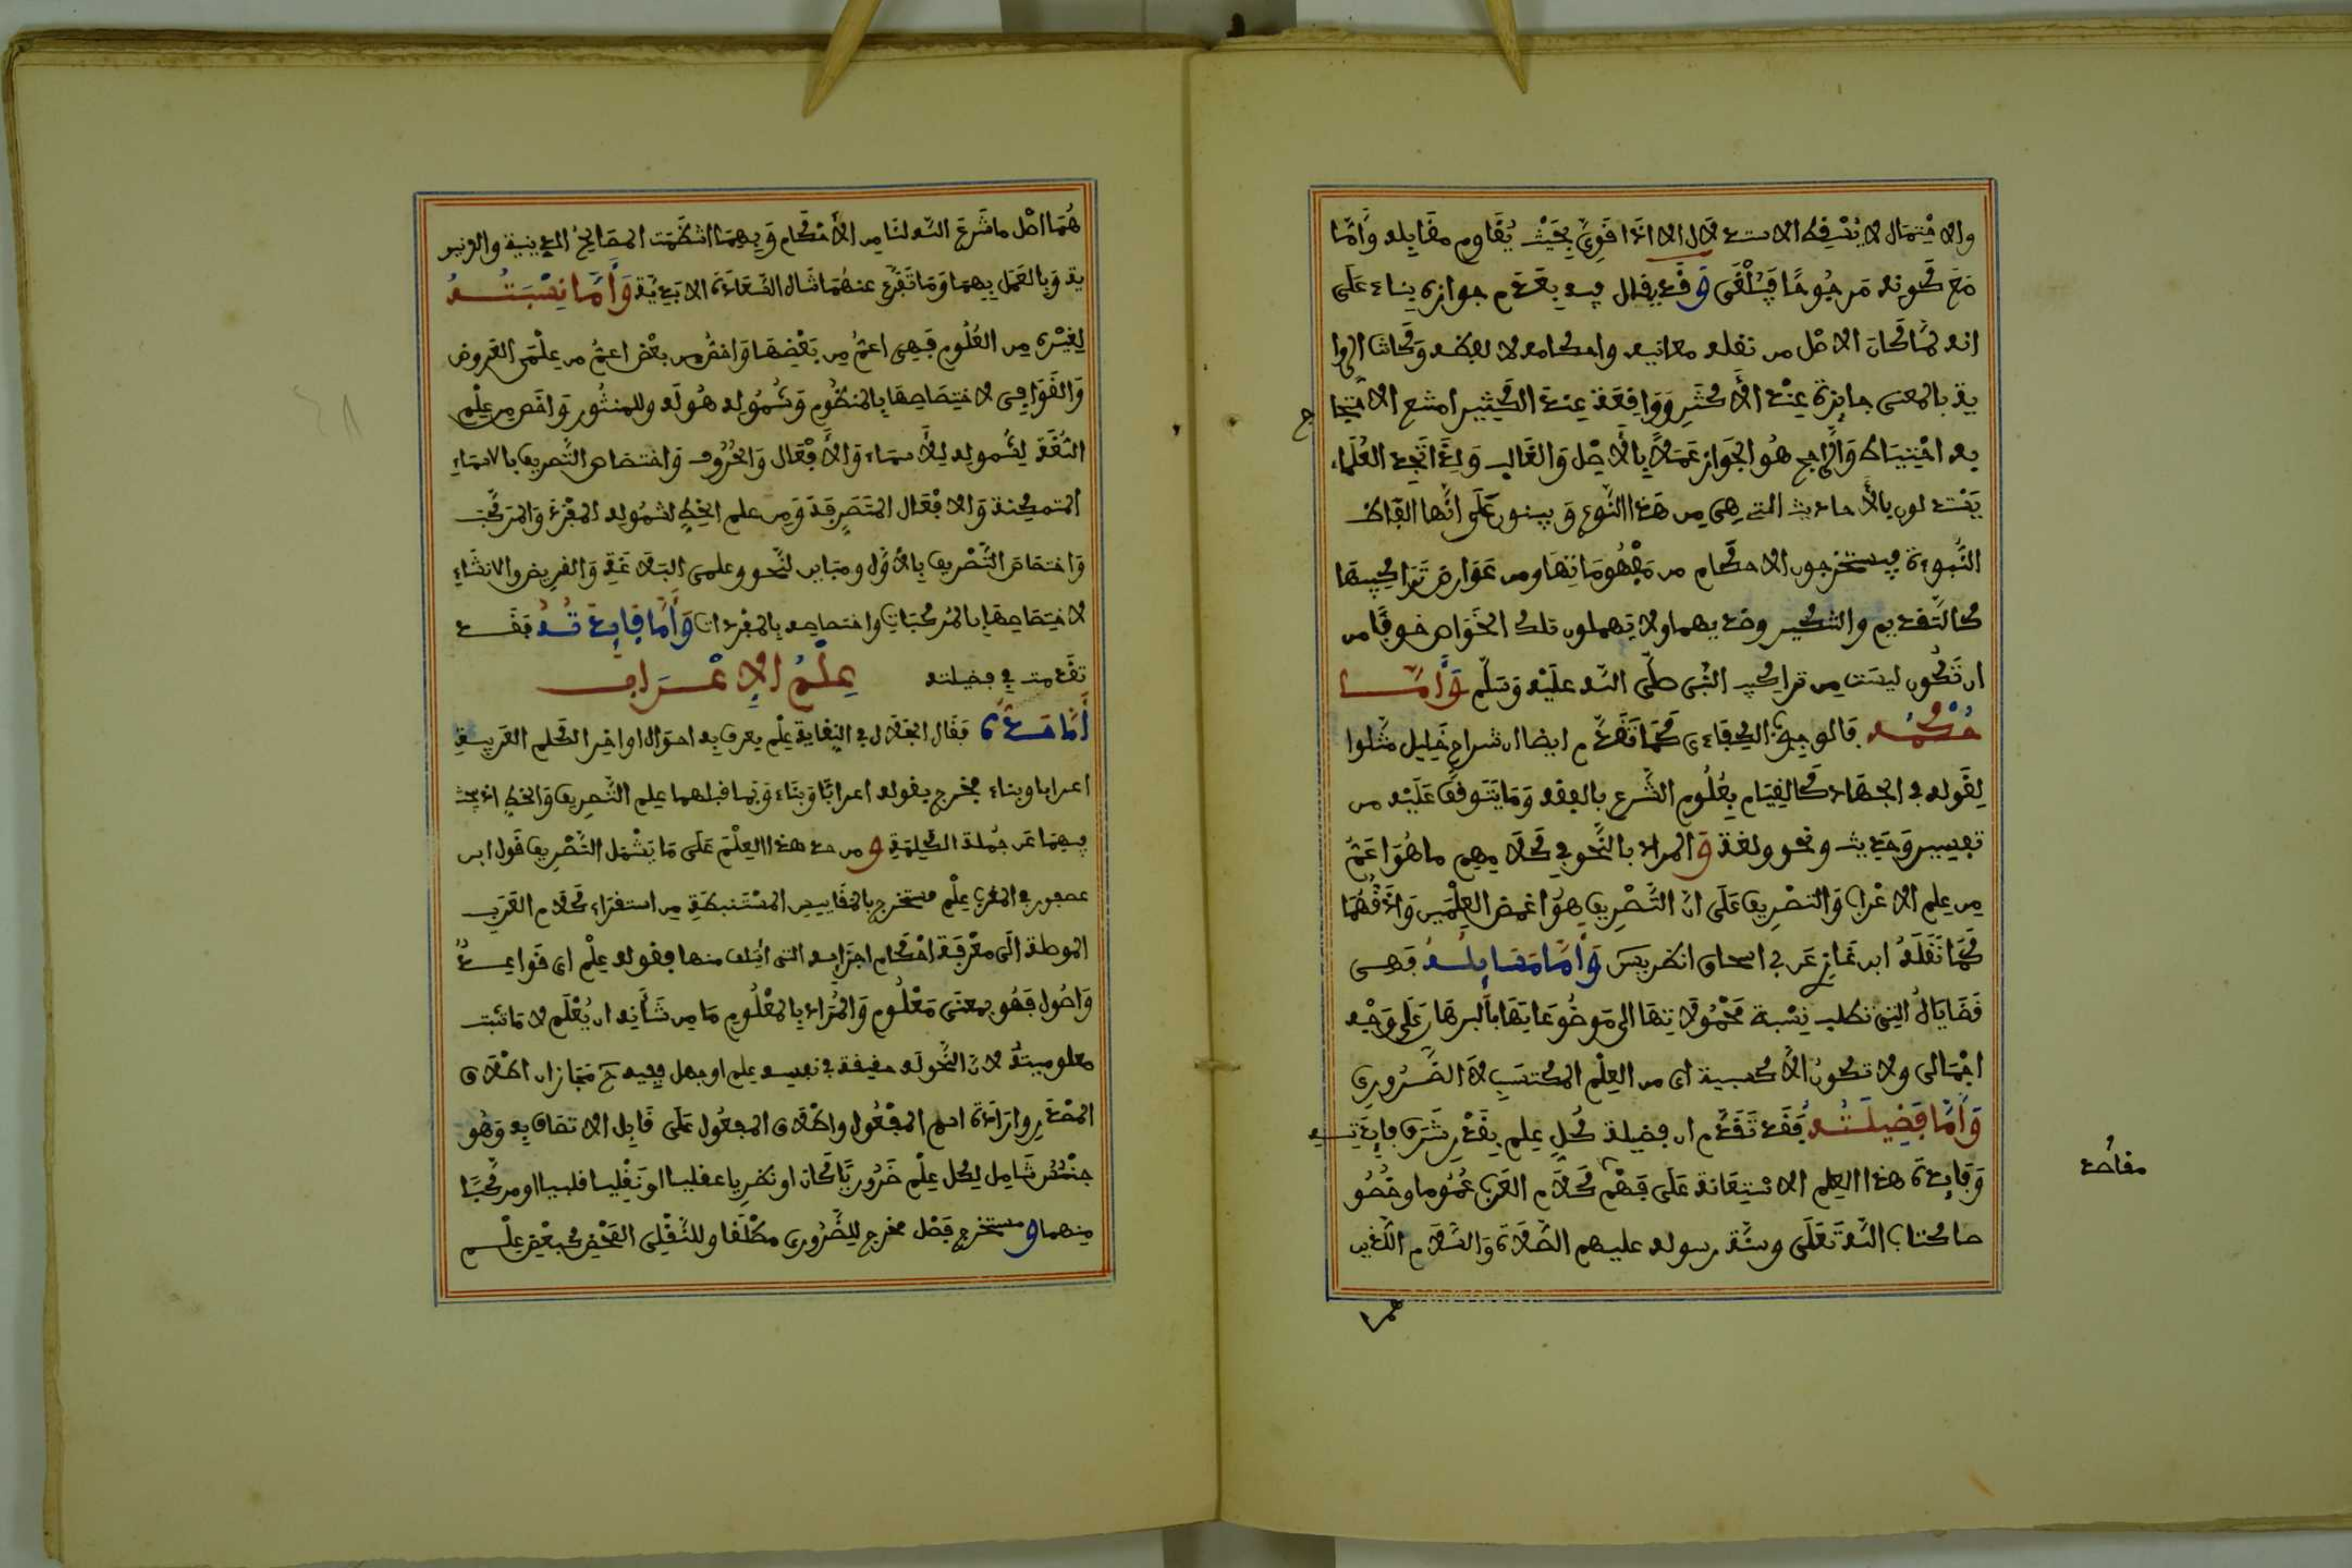 والاحتمال لا يسقط الاستدلال الا اذا قوي بحيث يقاوم مقابله وأما
مع كونه مرجوحا فيلغى وقد يقال فيه بعدم جوازه بناء على
انه لما كان الاصل من نقله معانيه واحكامه لا لفظه وكانت الروا
ية بالمعنى جايزة عند الأكثر وواقعة عند الكثير امتنع الاحتجا
ج
به احتياط والراجح هو الجواز عملا بالأصل والغالب ولذا تجد العلماء
يستدلون بالأحاديث التي هي من هذا النوع ويبنون على أنها الفاظ
النبوءة فيستخرجون الاحكام من مفهوماتها ومن عوارض تراكيبها
كالتقديم والتنكير وضديهما ولا يهملون تلك الخواص خوفا من
ان تكون ليست من تراكيب النبي صلى الله عليه وسلم وأما
حكمه فالوجوب الكفاءي كما تقدم ايضا ان شراح خليل مثلوا
لقوله في الجهاد كالقيام بعلوم الشرع بالفقه وما يتوقف عليه من
تفسير وحديث ونحو ولغة والمراد بالنحو في كلامهم ما هو اعم
من علم الاعراب والتصريف على ان التصريف هو اغمض العلمين وادقهما
كما نقله ابن غازي عن ابي اسحاق انظر يس وأما مسايله فهي
قضاياه التي تطلب نسبة محمولاتها الى موضوعاتها بالبرهان على وجه
اجمالي ولا تكون الا كسبية اي من العلم المكتسب لا الضروري
وأما فضيلته فقد تقدم ان فضيلة كل علم بقدر شرف فايدته
وفايدة هذا العلم الاستعانة على فهم كلام العرب عموما وخصو
صا كتاب الله تعلى وسنة رسوله عليهم الصلاة والسلام الذين
هما
هما اصل ما شرع الله لنا من الأحكام وبهما انتظمت المصالح الدينية والدنيو
ية وبالعمل بهما وما تفرع عنهما تنال السعادة الابدية وأما نسبته
لغيره من العلوم فهي اعم من بعضها واخص من بعض اعم من علمي العروض
والقوافي لاختصاصها بالمنظوم وشموله هو له وللمنثور واخص من علم
اللغة لشموله للأسماء والأفعال والحروف واختصاص التصريف بالاسماء
المتمكنة والافعال المتصرفة ومن علم الخط لشموله المفرد والمركب
واختصاص التصريف بالأول ومباين لنحو وعلمي البلاغة والقريض والانشاء
لاختصاصها بالمركبات واختصاصه بالمفردات وأما فايدته فقد
تقدمت في فضيلته علم الإعراب
أما حده فقال الجلال في النقاية علم يعرف به احوال اواخر الكلم العربية
اعرابا وبناء فخرج بقوله اعرابا وبناء وبما قبلهما علم التصريف والخط اذ يبحث
فيهما عن جملة الكلمة ومن حد هذا العلم على ما يشمل التصريف قول ابن
عصفور في المقرب علم مستخرج بالمقاييس المستنبطة من استقراء كلام العرب
الموصلة الى معرفة احكام اجزايه التي ائتلف منها فقوله علم اي قواعد
واصول فهو بمعنى معلوم والمراد بالمعلوم ما من شأنه ان يعلم لا ما ثبت
معلوميته لان النحو له حقيقة في نفسه علم او جهل ففيه ح مجازان اطلاق
المصدر وارادة اسم المفعول واطلاق المفعول على قابل الاتصاف به وهو
جنس شامل لكل علم ضروريا كان او نظريا عقليا او نقليا قلبيا او مركبا
منهما ومستخرج فصل مخرج للضروري مطلقا وللنقلي المحض كبعض علم